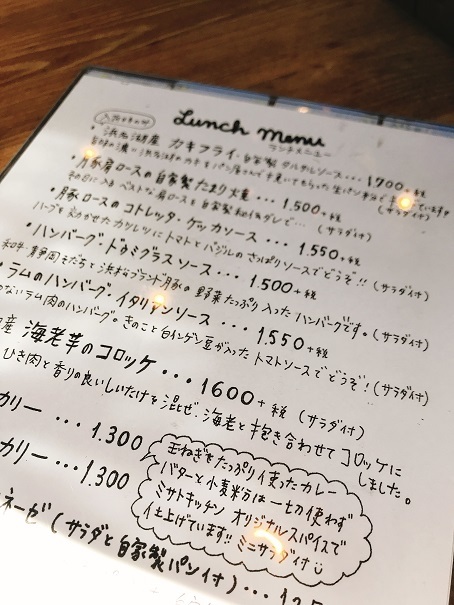 Lunch Menu
ランチメニュー
・浜名湖産 カキフライ・自家製 タルタルソース・・・1700+税
(サラダ付)
・豚肩ロースの自家製たまり焼・・・1.500+税
(サラダ付)
・豚ロースのコトレッタ・ケッカソース・・・1.550+税
ハーブを効かせたカツレツにトマトとバジルのさっぱりソースでどうぞ!!(サラダ付)
・ハンバーグ・ドゥミグラスソース・・・1.500+税
和牛・静岡そだちと浜松ブランド豚の野菜たっぷり入ったハンバーグです。(サラダ付)
・ラムのハンバーグ・イタリアンソース・・・1.550+税
ないラム肉のハンバーグ。きのこと白インゲン豆が入ったトマトソースでどうぞ!(サラダ付)
産 海老芋のコロッケ・・・1600+税(サラダ付)
ひき肉と香りの良いしいたけを混ぜ、海老と抱き合わせてコロッケに
しました。
カリー・・・1.300
カリー・・・1.300
玉ねぎをたっぷり使ったカレー
バターと小麦粉は一切使わず
ミサトキッチン オリジナルスパイスで
仕上げています!! ミニサラダ付
ネーゼ(サラダと自家製パン付)・・・